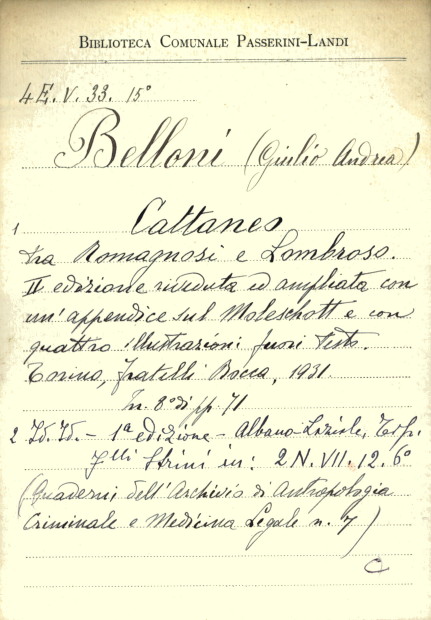 BIBLIOTECA COMUNALE PASSERINI-LANDI
4 E. V. 33. 15°
Belloni (Giulio Andrea)
1 Cattaneo
tra Romagnosi e Lombroso.
II edizione riveduta ed ampliata con
un'appendice sul Moleschott e con
quattro illustrazioni fuori testo.
Torino, fratelli Bocca, 1931
In. 8° di pp. 71
2 Id. Id. - 1ª edizione - Albano-Laziale, Tip.
F.lli Strini in: 2 N. VII. 12. 6°
(Quaderni dell'Archivio di Antropologia
Criminale e Medicina Legale n. 7)
C